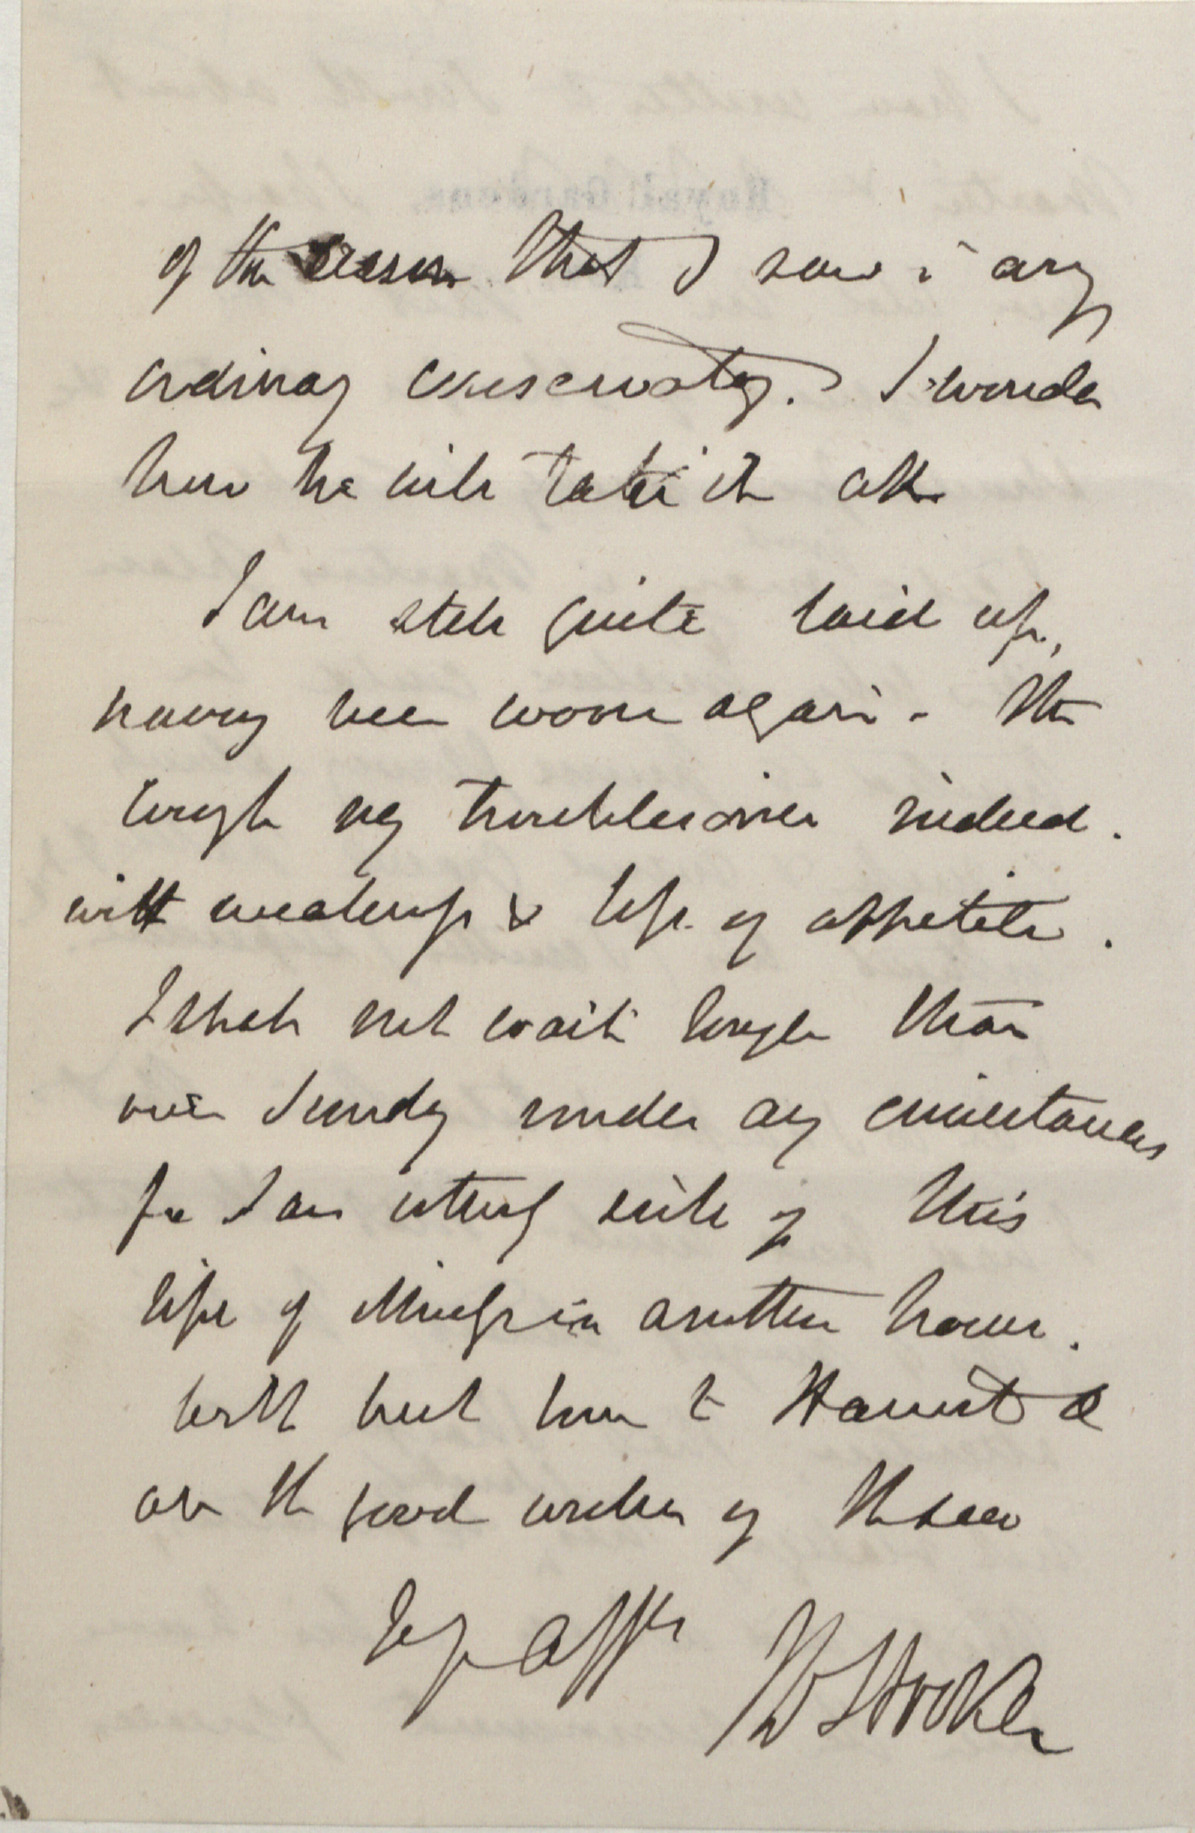 of the that I saw in any
ordinary conservatory. I wonder
how he will take it all
I am still quite laid up,
having been worse again - The
cough very troublesome indeed.
with weakness & loss of appetite.
I shall not wait longer than
over Sunday under any circumstances
for I am utterly sick of this
life of illness in another house.
With best love to Harriet &
all the good wishes of the season
Ever yr affte
JD Hooker